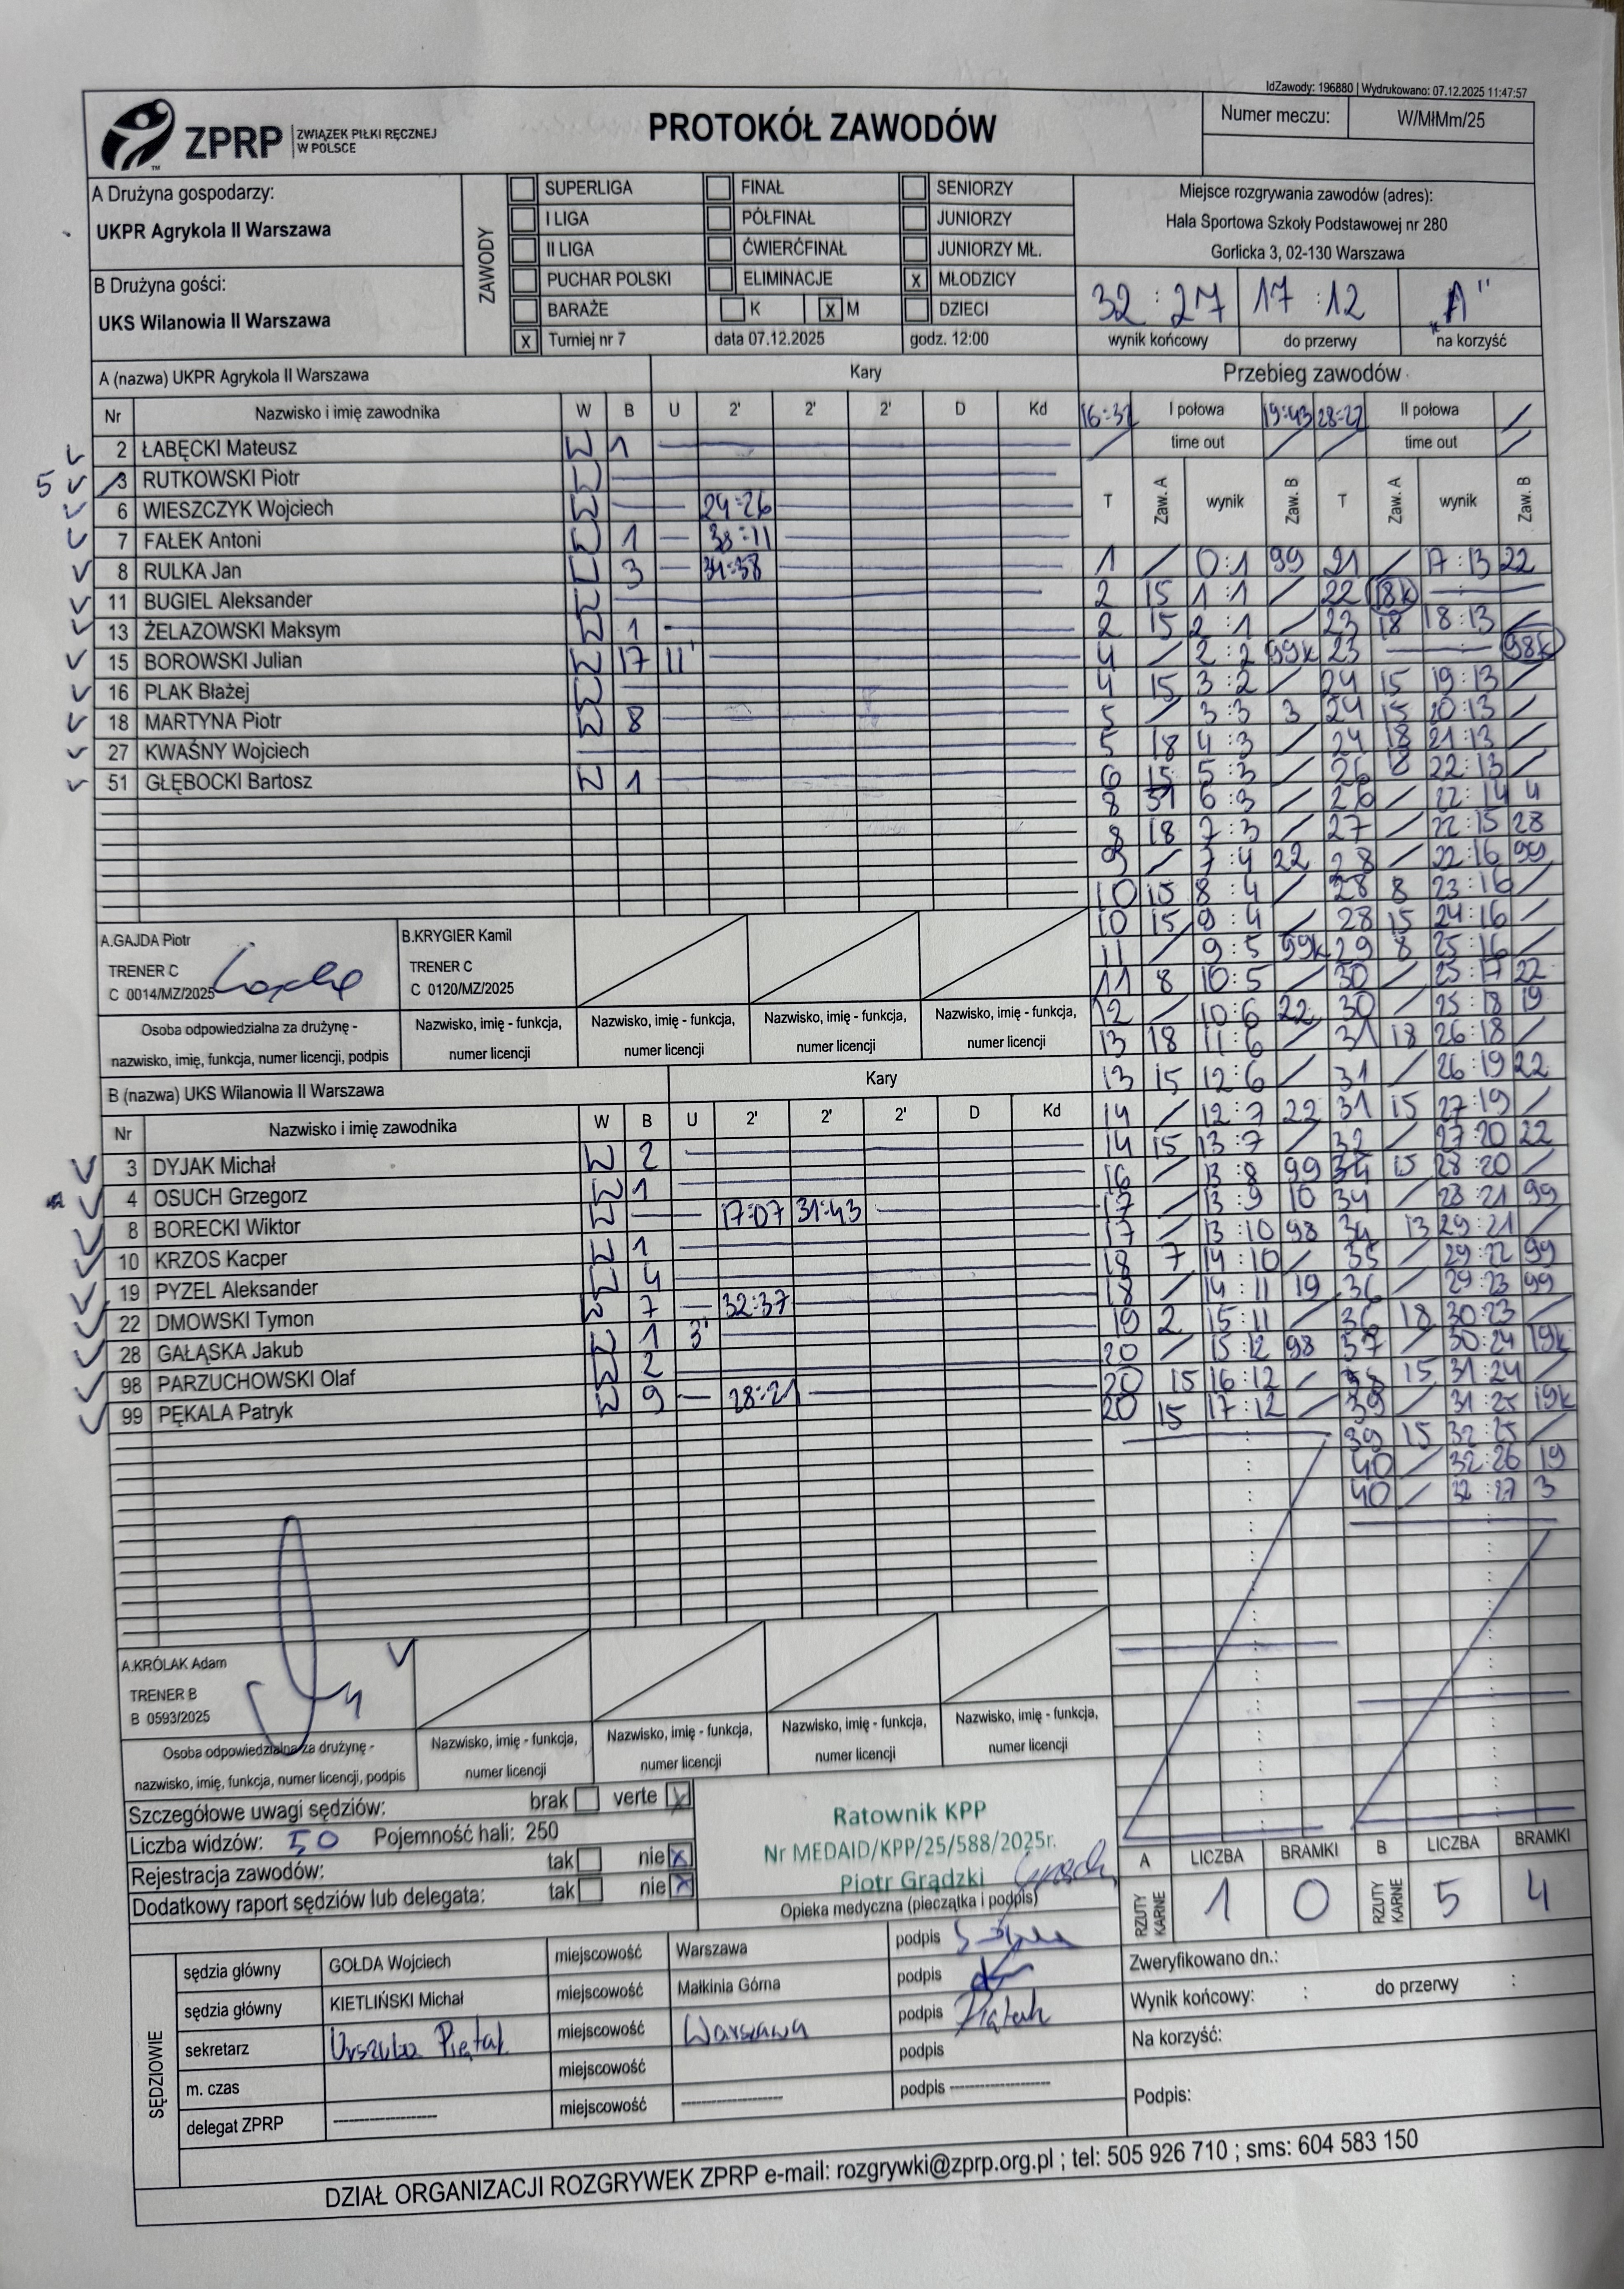 IdZawody: 196880 | Wydrukowano: 07.12.2025 11:47:57
ZPRP ZWIĄZEK PIŁKI RĘCZNEJ W POLSCE
PROTOKÓŁ ZAWODÓW
Numer meczu: W/MłMm/25
A Drużyna gospodarzy:
UKPR Agrykola II Warszawa
B Drużyna gości:
UKS Wilanowia II Warszawa
ZAWODY
SUPERLIGA FINAŁ SENIORZY
I LIGA PÓŁFINAŁ JUNIORZY
II LIGA ĆWIERĆFINAŁ JUNIORZY MŁ.
PUCHAR POLSKI ELIMINACJE x MŁODZICY
BARAŻE K x M DZIECI
x Turniej nr 7 data 07.12.2025 godz. 12:00
Miejsce rozgrywania zawodów (adres):
Hala Sportowa Szkoły Podstawowej nr 280
Gorlicka 3, 02-130 Warszawa
32 : 27 17 : 12 „A"
wynik końcowy do przerwy na korzyść
A (nazwa) UKPR Agrykola II Warszawa Kary
Nr Nazwisko i imię zawodnika W B U 2' 2' 2' D Kd
2 ŁABĘCKI Mateusz W 1
5 3 RUTKOWSKI Piotr W
6 WIESZCZYK Wojciech W 24:26
7 FAŁEK Antoni W 1 38:11
8 RULKA Jan W 3 34:38
11 BUGIEL Aleksander W
13 ŻELAZOWSKI Maksym W 1
15 BOROWSKI Julian W 17 11'
16 PLAK Błażej W
18 MARTYNA Piotr W 8
27 KWAŚNY Wojciech
51 GŁĘBOCKI Bartosz W 1
A.GAJDA Piotr
TRENER C
C 0014/MZ/2025
B.KRYGIER Kamil
TRENER C
C 0120/MZ/2025
Osoba odpowiedzialna za drużynę -
nazwisko, imię, funkcja, numer licencji, podpis
Nazwisko, imię - funkcja, numer licencji
Nazwisko, imię - funkcja, numer licencji
Nazwisko, imię - funkcja, numer licencji
Nazwisko, imię - funkcja, numer licencji
B (nazwa) UKS Wilanowia II Warszawa Kary
Nr Nazwisko i imię zawodnika W B U 2' 2' 2' D Kd
3 DYJAK Michał W 2
4 OSUCH Grzegorz W 1
8 BORECKI Wiktor W 17:07 31:43
10 KRZOS Kacper W 1
19 PYZEL Aleksander W 4
22 DMOWSKI Tymon W 7 32:37
28 GAŁĄSKA Jakub W 1 3'
98 PARZUCHOWSKI Olaf W 2
99 PĘKALA Patryk W 9 28:21
A.KRÓLAK Adam
TRENER B
B 0593/2025
Osoba odpowiedzialna za drużynę -
nazwisko, imię, funkcja, numer licencji, podpis
Nazwisko, imię - funkcja, numer licencji
Nazwisko, imię - funkcja, numer licencji
Nazwisko, imię - funkcja, numer licencji
Nazwisko, imię - funkcja, numer licencji
Przebieg zawodów
I połowa 19:43 28:27 II połowa
time out time out
T Zaw. A wynik Zaw. B T Zaw. A wynik Zaw. B
1 / 0:1 99 21 / 17:13 22
2 15 1:1 / 22 18k
2 15 2:1 / 23 18 18:13 /
4 / 2:2 99k 23 98k
4 15 3:2 / 24 15 19:13 /
5 / 3:3 3 24 15 20:13 /
5 18 4:3 / 24 18 21:13 /
6 15 5:3 / 26 8 22:13 /
8 51 6:3 / 26 / 22:14 4
8 18 7:3 / 27 / 22:15 28
9 / 7:4 22 28 / 22:16 99
10 15 8:4 / 28 8 23:16 /
10 15 9:4 / 28 15 24:16 /
11 / 9:5 99k 29 8 25:16 /
11 8 10:5 / 30 / 25:17 22
12 / 10:6 22 30 / 25:18 19
13 18 11:6 / 31 18 26:18 /
13 15 12:6 / 31 / 26:19 22
14 / 12:7 22 31 15 27:19 /
14 15 13:7 / 32 / 27:20 22
16 / 13:8 99 34 15 28:20 /
17 / 13:9 10 34 / 28:21 99
17 / 13:10 98 34 13 29:21 /
18 7 14:10 / 35 29:22 99
18 / 14:11 19 36 / 29:23 99
19 2 15:11 / 36 18 30:23 /
20 / 15:12 98 37 / 30:24 19k
20 15 16:12 / 38 15 31:24 /
20 15 17:12 / 39 / 31:25 19k
39 15 32:25 /
40 / 32:26 19
40 / 32:27 3
Szczegółowe uwagi sędziów: brak verte x
Liczba widzów: 50 Pojemność hali: 250
Rejestracja zawodów: tak nie x
Dodatkowy raport sędziów lub delegata: tak nie x
Ratownik KPP
Nr MEDAID/KPP/25/588/2025r.
Piotr Grądzki
Opieka medyczna (pieczątka i podpis)
A LICZBA BRAMKI B LICZBA BRAMKI
RZUTY KARNE 1 0 RZUTY KARNE 5 4
SĘDZIOWIE
sędzia główny GOŁDA Wojciech miejscowość Warszawa podpis
sędzia główny KIETLIŃSKI Michał miejscowość Małkinia Górna podpis
sekretarz Urszula Piętak miejscowość Warszawa podpis Piątak
m. czas miejscowość podpis
delegat ZPRP ---------- miejscowość ---------- podpis ----------
Zweryfikowano dn.:
Wynik końcowy: : do przerwy :
Na korzyść:
Podpis:
DZIAŁ ORGANIZACJI ROZGRYWEK ZPRP e-mail: rozgrywki@zprp.org.pl ; tel: 505 926 710 ; sms: 604 583 150